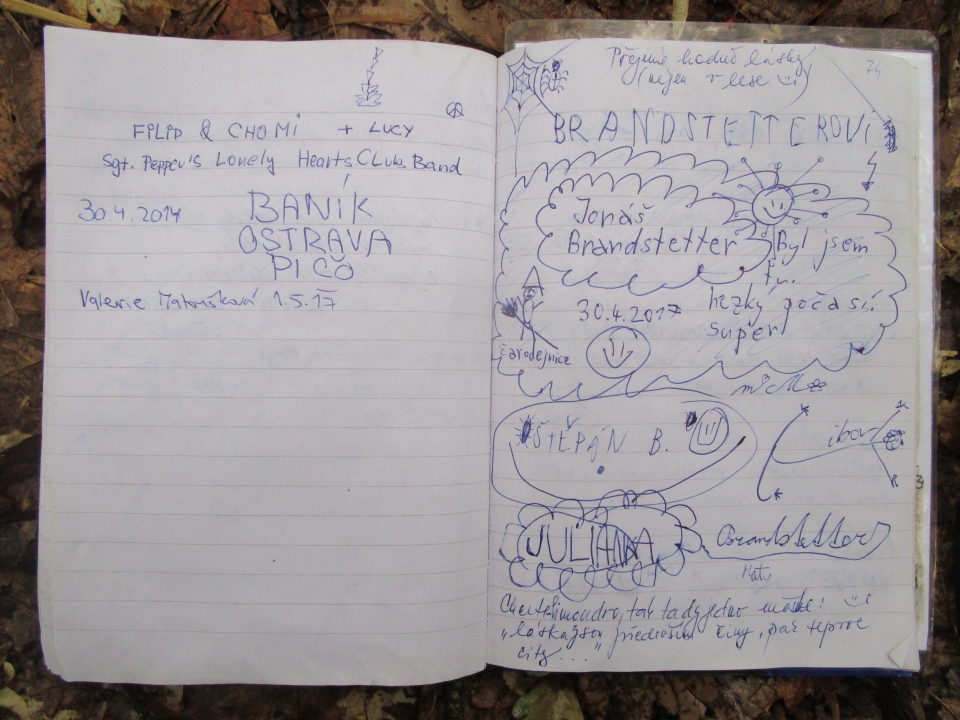 FILIP & CHOMI + LUCY
Sgt. Pepper's Lonely Hearts Club Band
30.4.2014
BANÍK
OSTRAVA
PIČO
Valerie 1.5.17
74
Přejeme hodně lásky
(nejen v lese
BRANDSTETTEROVI
Jonáš
Brandstetter
Byl jsem
tu...
30.4.2017
hezký počasí.
super!
čarodejnice
ŠTĚPÁN B.
ibor
JULIANA
Brandstetter
Maty
tak tady jedno
"láska jsou především činy, pak teprve
city..."